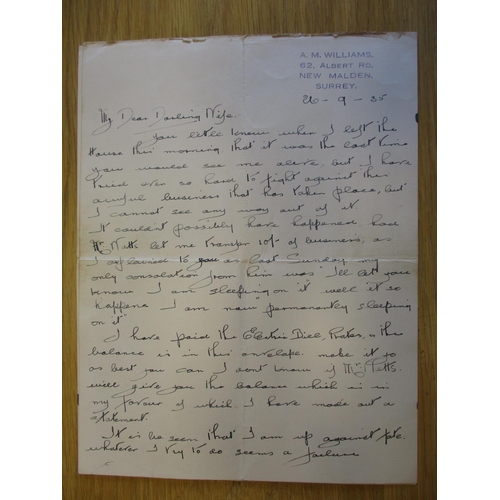 A. M. WILLIAMS.
62, ALBERT RD,
NEW MALDEN,
SURREY.
26 - 9 - 35
My Dear Darling Wife.
you little know when I left the
House this morning that it was the last time
you would see me alive, but I have
tried ever so hard to fight against this
awful business that has taken place, but
I cannot see any way out of it.
It couldn't possibly have happened had
Mr Titts let me transfer of business, as
I explained to you as last Sunday my
only consolation from him was "I'll let you
know I am sleeping on it" well it so
happens I am now "permanently sleeping
on it"
I have paid the Electric Bill, Rates, & the
balance is in this envelope make it go
as best you can I dont know if Mr Titts
will give you the balance which is in
my favour of which I have made out a
statement.
It is be seen that I am up against fate
whatever I try to do seems a failure